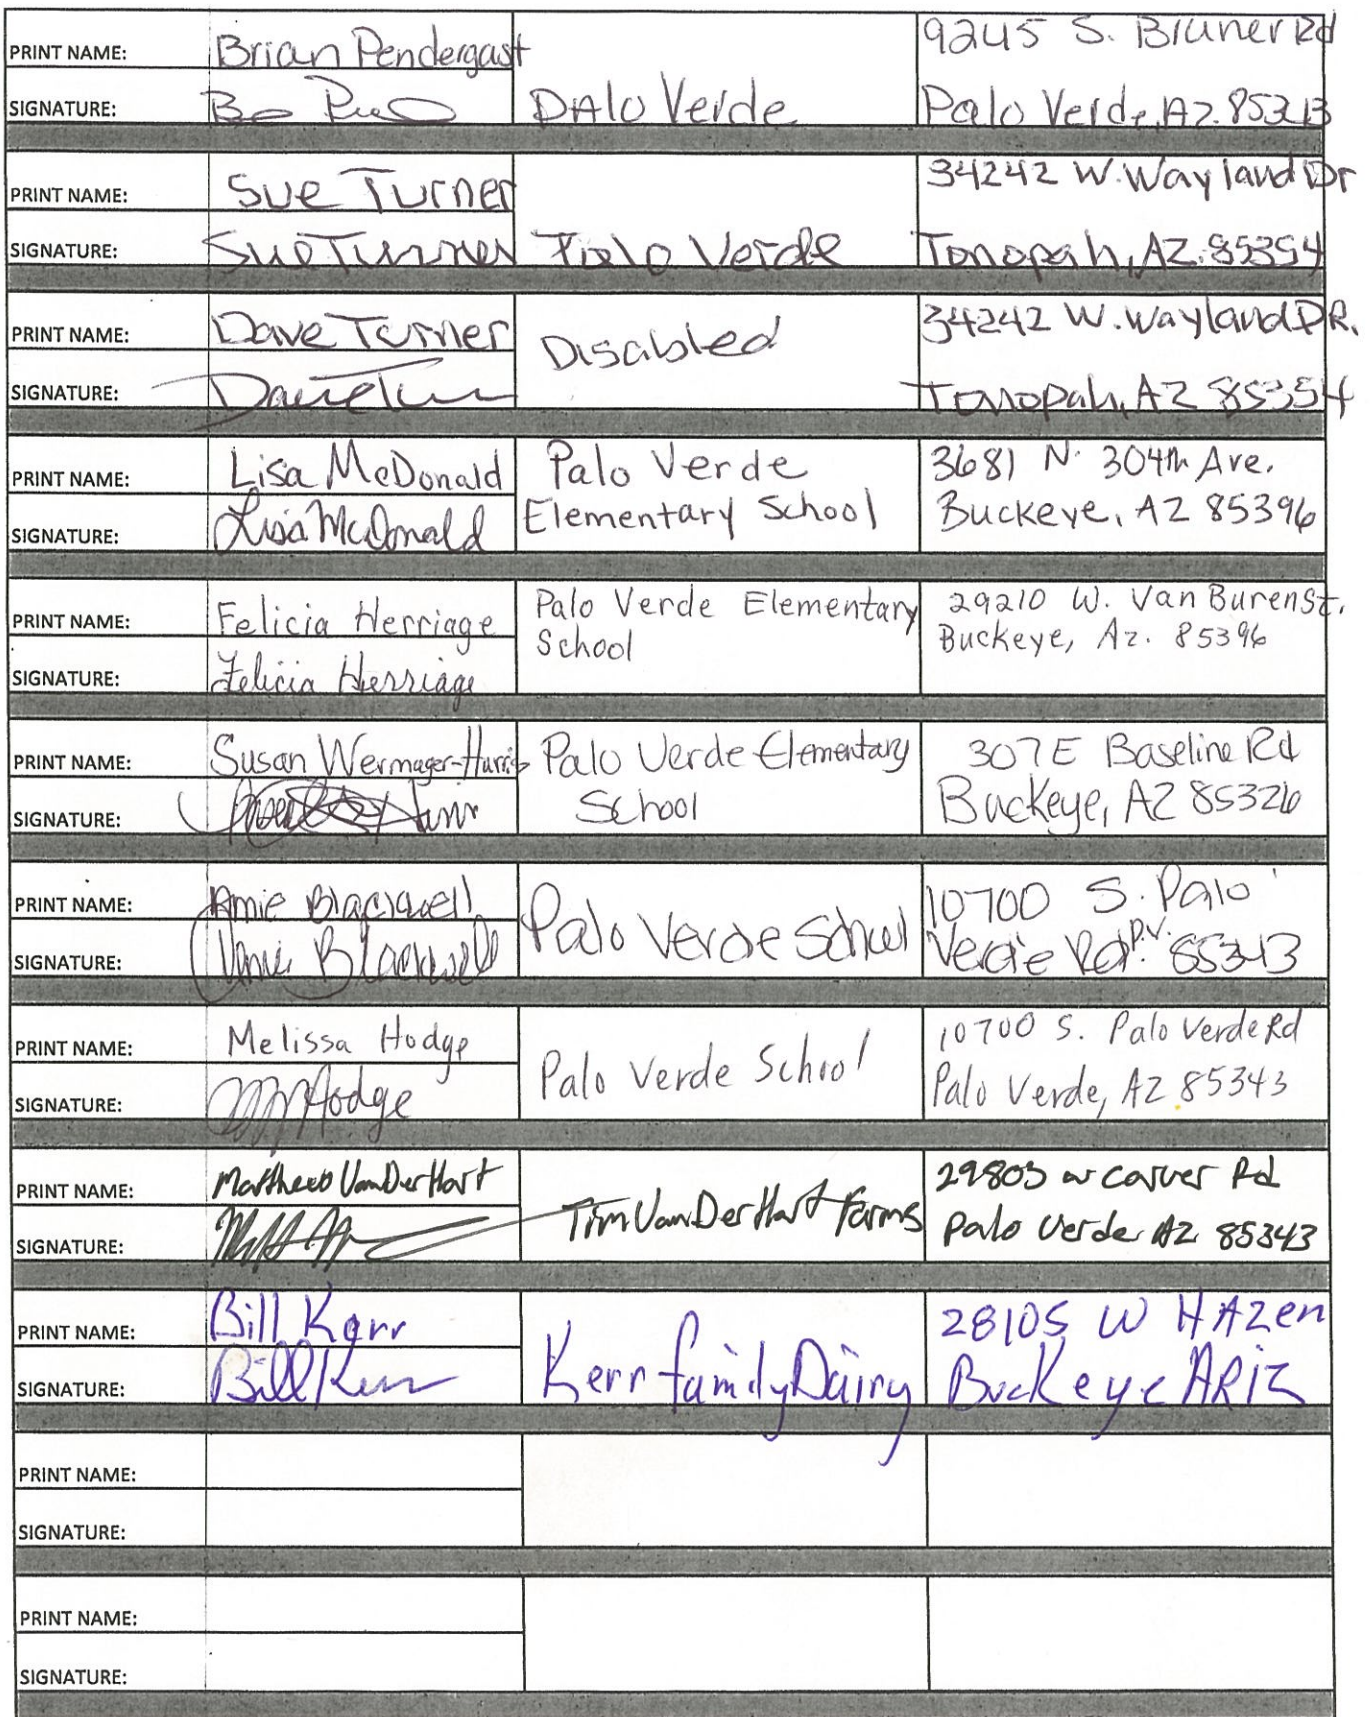 PRINT NAME: Brian Pendergast
9245 S. Bruner Rd
SIGNATURE:
PAlo Verde
Palo Verde, Az. 85343
PRINT NAME: Sue Turner
34242 W. Wayland Dr
SIGNATURE: Sue Turner
Palo Verde
Tonopah, AZ. 85354
PRINT NAME: Dave Turner
Disabled
34242 W. Wayland DR.
SIGNATURE: Dave
Tonopah, AZ 85354
PRINT NAME: Lisa McDonald
Palo Verde
3681 N. 304th Ave.
SIGNATURE: Lisa McDonald
Elementary School
Buckeye, AZ 85396
PRINT NAME: Felicia Herriage
Palo Verde Elementary
School
29210 W. Van Buren St.
Buckeye, Az. 85396
SIGNATURE: Felicia Herriage
PRINT NAME: Susan Wermager-Harris
Palo Verde Elementary
307 E Baseline Rd
SIGNATURE:
School
Buckeye, AZ 85326
PRINT NAME: Amie Blackwell
Palo Verde School
10700 S. Palo
SIGNATURE: Amie Blackwell
Verde Rd. P.V. 85343
PRINT NAME: Melissa Hodge
Palo Verde School
10700 S. Palo Verde Rd
SIGNATURE: M Hodge
Palo Verde, AZ 85343
PRINT NAME: Matthew VanDerHart
Tim VanDerHart Farms
29803 w carver Rd
SIGNATURE:
Palo Verde AZ 85343
PRINT NAME: Bill Kerr
Kerr family Dairy
28105 W HAZen
SIGNATURE: Bill Kerr
Buckeye ARIZ
PRINT NAME:
SIGNATURE:
PRINT NAME:
SIGNATURE: